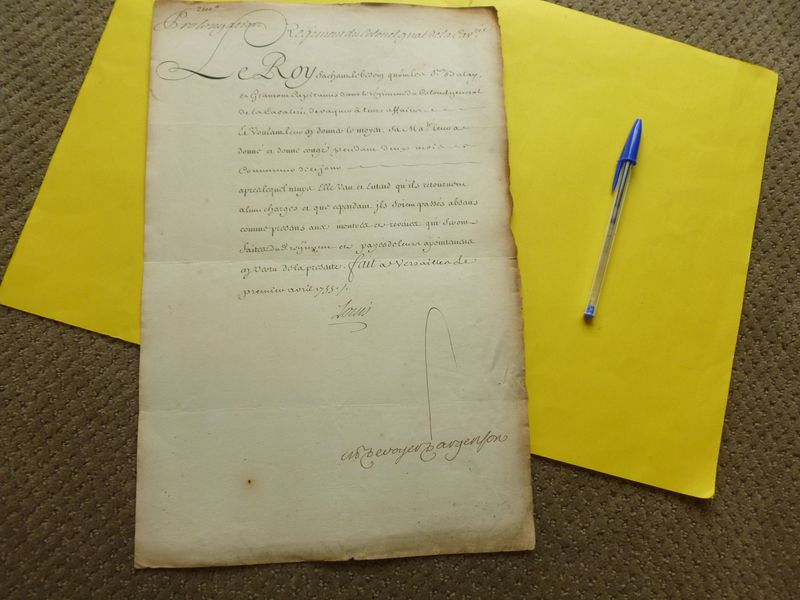 2me
Prolongation Regiment du Colonel gnal de la Cavrie
Le Roy sachant le besoin qu'ont les Srs
et Gramont Capitaines dans le regiment du Colonel general
de la Cavalerie de vaquer à leurs affaires
Et Voulant leur en donner le moyen, Sa Mate leur a
donné et donne congé pendant deux mois
Commencer de ce jour
apres lequel temps Elle Veut et Entend qu'ils retournent
a leurs charges et que cependant ils soient passés absens
comme presens aux montres et reveües qui seront
faites dud. regiment et payés de leurs apointemens
en vertu de la presente. fait a Versailles le
premier avril 1755./.
Louis
M P De voyer D'argenson